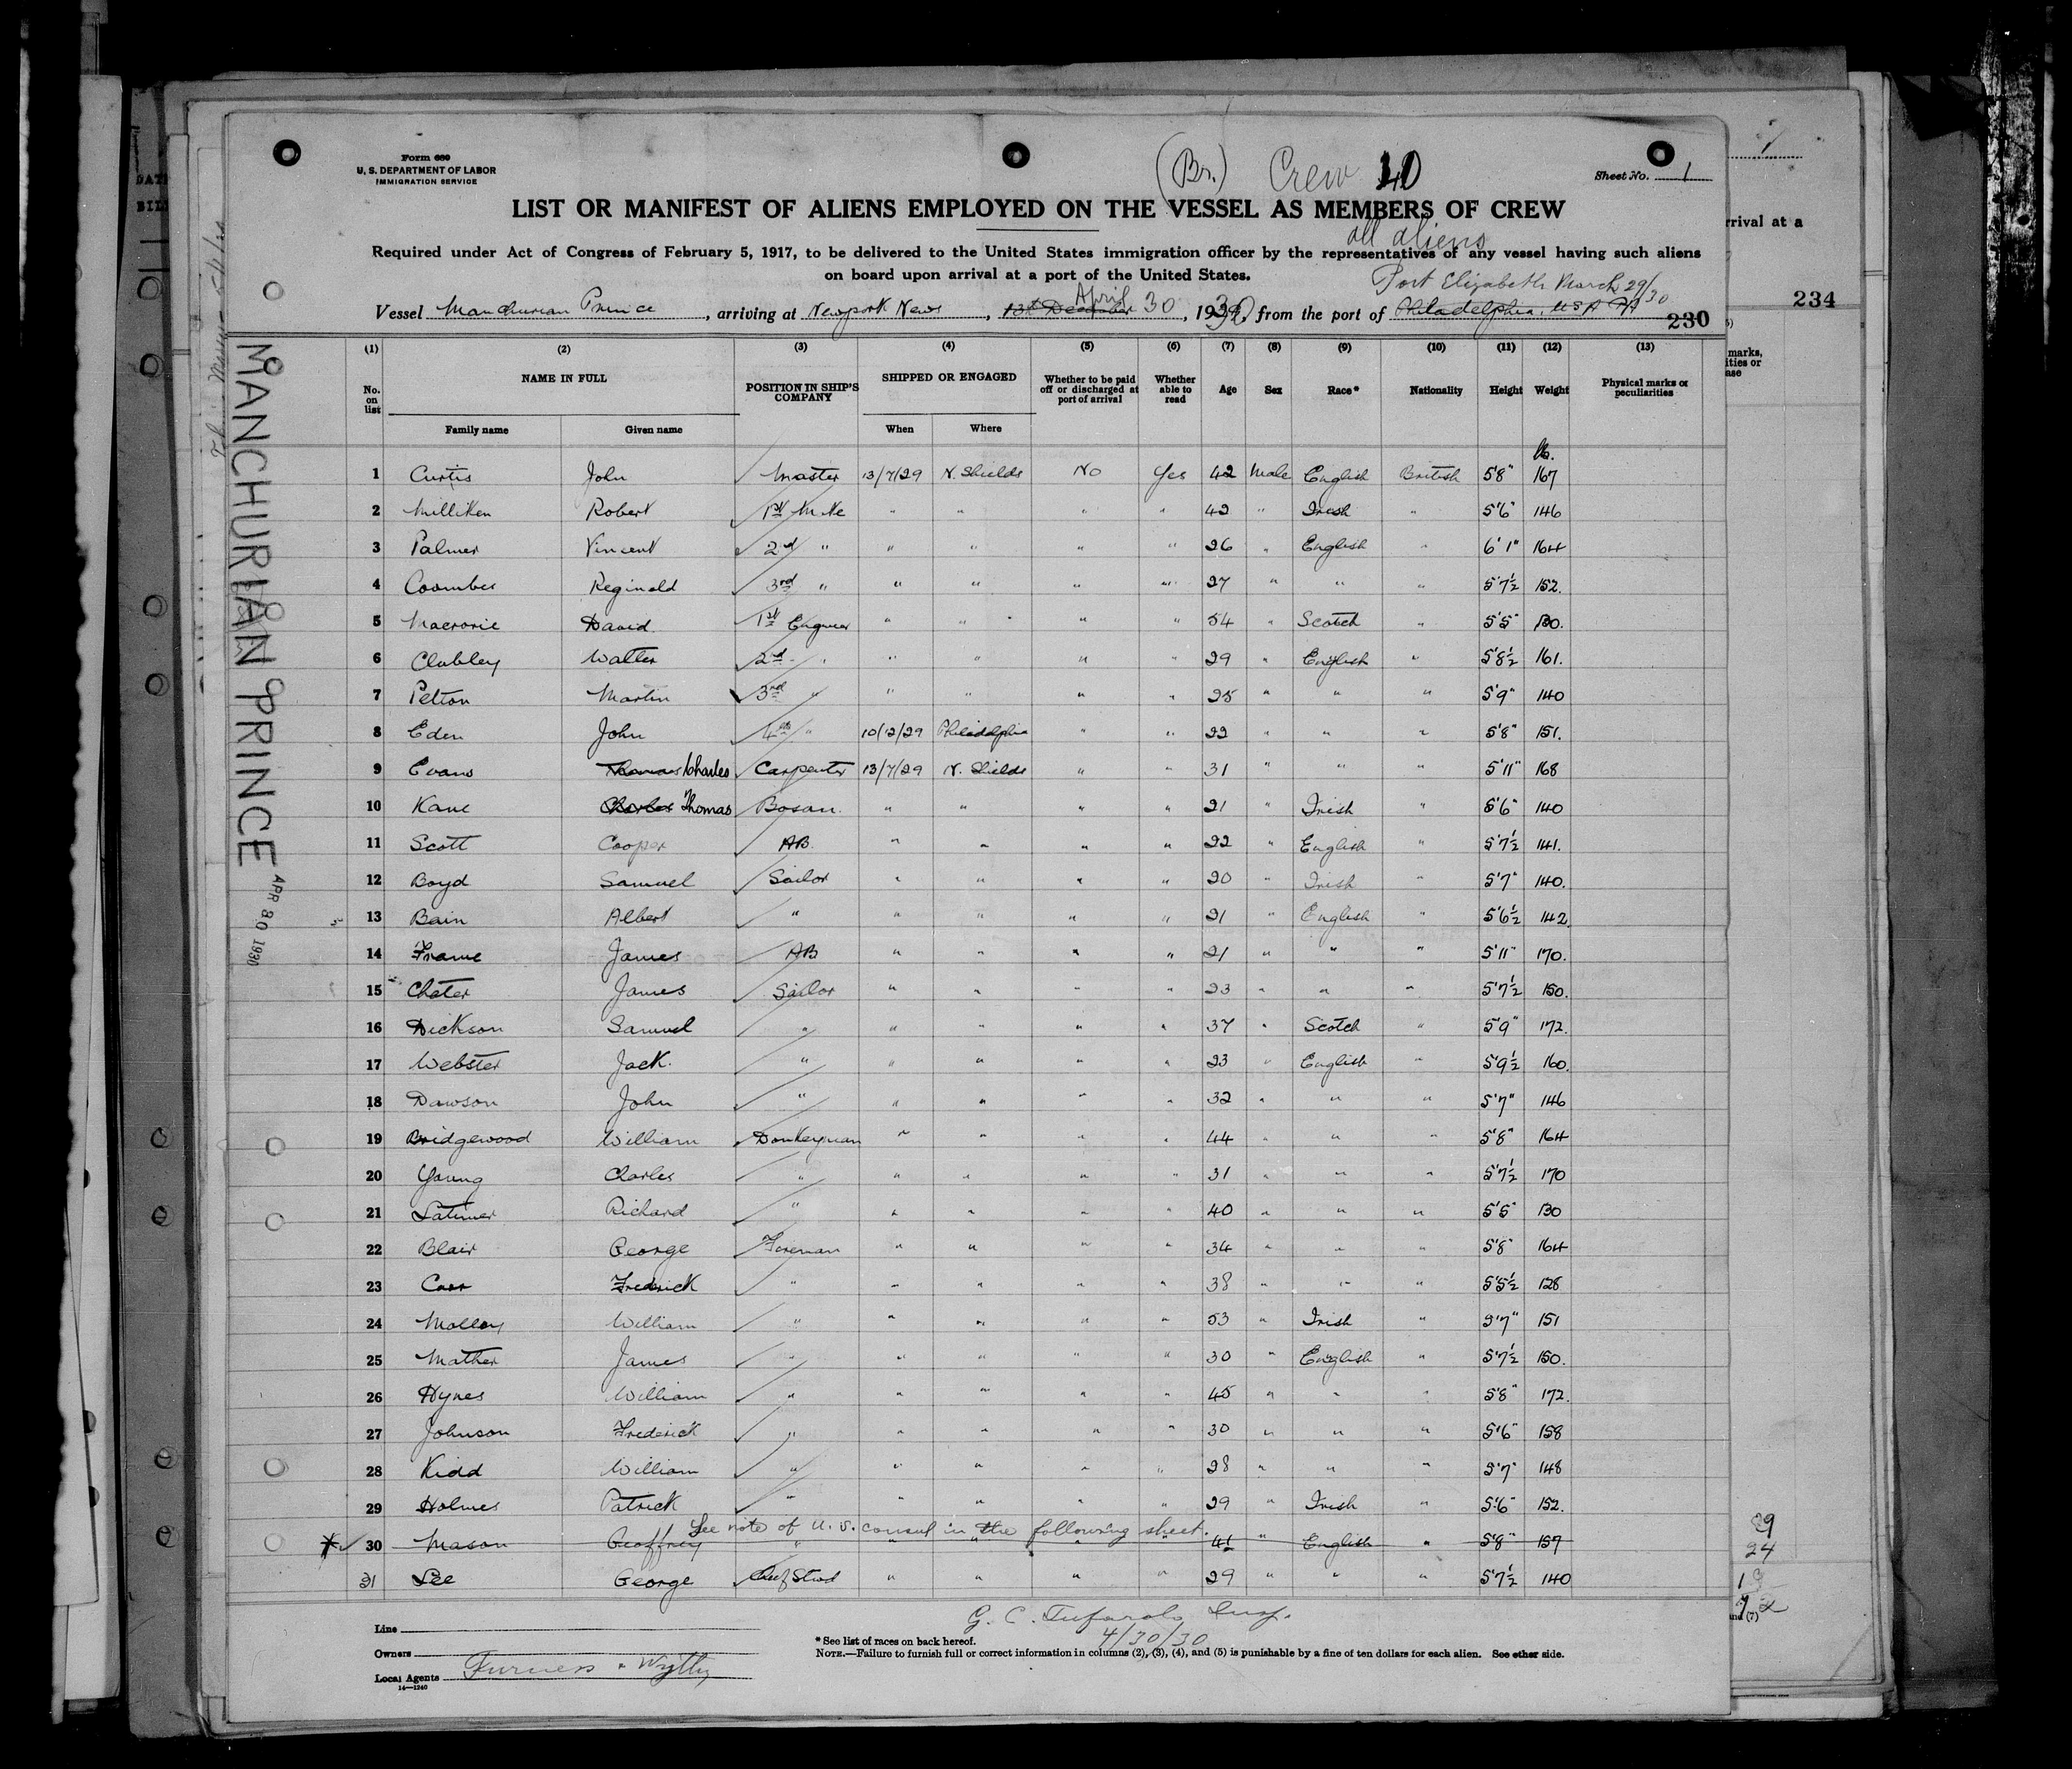 Form 680
U. S. DEPARTMENT OF LABOR
IMMIGRATION SERVICE
(Br.) Crew 40
all aliens
Sheet No. 1
LIST OR MANIFEST OF ALIENS EMPLOYED ON THE VESSEL AS MEMBERS OF CREW
Required under Act of Congress of February 5, 1917, to be delivered to the United States immigration officer by the representatives of any vessel having such aliens
on board upon arrival at a port of the United States.
Port Elizabeth March 29/30
Vessel Manchurian Prince, arriving at Newport News, 13th December April 30, 1930, from the port of Philadelphia, USA
230
(1) (2) (3) (4) (5) (6) (7) (8) (9) (10) (11) (12) (13)
No. on list NAME IN FULL POSITION IN SHIP'S COMPANY SHIPPED OR ENGAGED Whether to be paid off or discharged at port of arrival Whether able to read Age Sex Race* Nationality Height Weight Physical marks or peculiarities
Family name Given name When Where
lb.
1 Curtis John Master 13/7/29 N. Shields No Yes 42 Male English British 5'8" 167
2 Milliken Robert 1st Mate " " " " 42 " Irish " 5'6" 146
3 Palmer Vincent 2nd " " " " " 26 " English " 6'1" 164
4 Coombes Reginald 3rd " " " " " 27 " " " 5'7½ 152.
5 Macrorie David. 1st Engineer " " " " 54 " Scotch " 5'5" 130.
6 Clubley Walter 2nd " " " " " 29 " English " 5'8½ 161.
7 Pelton Martin 3rd " " " " " 25 " " " 5'9" 140
8 Eden John 4th " 10/12/29 Philadelphia " " 22 " " " 5'8" 151.
9 Evans Thomas Charles Carpenter 13/7/29 N. Shields " " 31 " " " 5'11" 168
10 Kane Charles Thomas Bosun. " " " " 21 " Irish " 5'6" 140
11 Scott Cooper AB. " " " " 22 " English " 5'7½ 141.
12 Boyd Samuel Sailor " " " " 20 " Irish " 5'7" 140.
13 Bain Albert " " " " " 21 " English " 5'6½ 142
14 Frame James AB " " " " 21 " " " 5'11" 170.
15 Chater James Sailor " " " " 23 " " " 5'7½ 150.
16 Dickson Samuel " " " " " 37 " Scotch " 5'9" 172.
17 Webster Jack. " " " " 23 " English " 5'9½ 160.
18 Dawson John " " " " " 32 " " " 5'7" 146
19 Bridgewood William Donkeyman " " " " 44 " " " 5'8" 164
20 Young Charles " " " " " 31 " " " 5'7½ 170
21 Latimer Richard " " " " " 40 " " " 5'5" 130
22 Blair George Fireman " " " " 34 " " " 5'8" 164
23 Carr Frederick " " " " " 38 " " " 5'5½ 128
24 Molloy William " " " " " 53 " Irish " 5'7" 151
25 Mather James " " " " " 30 " English " 5'7½ 150.
26 Hynes William " " " " " 45 " " " 5'8" 172.
27 Johnson Frederick " " " " " 30 " " " 5'6" 158
28 Kidd William " " " " " 28 " " " 5'7" 148
29 Holmes Patrick " " " " " 29 " Irish " 5'6" 152.
See note of U. S. consul in the following sheet.
30 Mason Geoffrey " " " " " 41 " English " 5'8" 157
31 Lee George Chief Stwd " " " " 29 " " " 5'7½ 140
Line
Owners
Local Agents Furness Wythy
14—1240
G. C. Tufarolo Insp.
4/30/30
* See list of races on back hereof.
NOTE.—Failure to furnish full or correct information in columns (2), (3), (4), and (5) is punishable by a fine of ten dollars for each alien. See other side.
MANCHURIAN PRINCE
APR 30 1930
rrival at a
234
marks,
ities or
ase
29
24
nd (7)
DAT
BIL